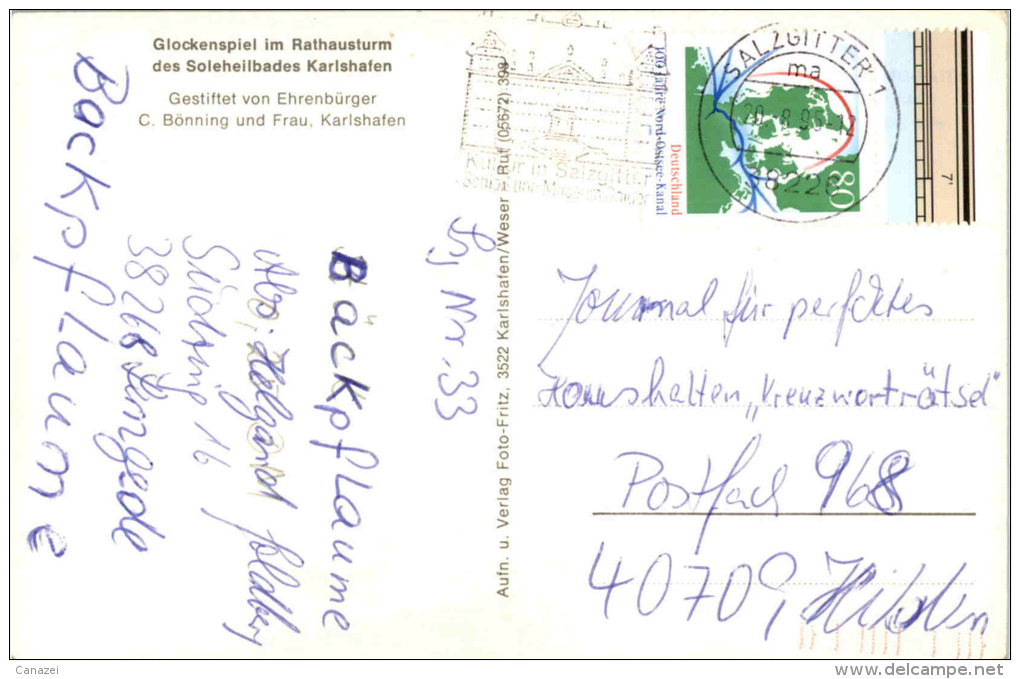 Glockenspiel im Rathausturm
des Soleheilbades Karlshafen
Gestiftet von Ehrenbürger
C. Bönning und Frau, Karlshafen
Backpflaume
Bäckpflaume
Abs.: Helgard
Südring 16
38268 Lengede
Nr. 33
Aufn. u. Verlag Foto-Fritz, 3522 Karlshafen/Weser - Ruf (05672) 398
Kultur in Salzgitter
SALZGITTER 1
ma
20.-8.95-12
38226
100 Jahre Nord-Ostsee-Kanal
Deutschland
80
7'
Journal für perfektes
Haushalten „Kreuzworträtsel"
Postfach 968
40709, Hilden
Canazei
www.delcampe.net